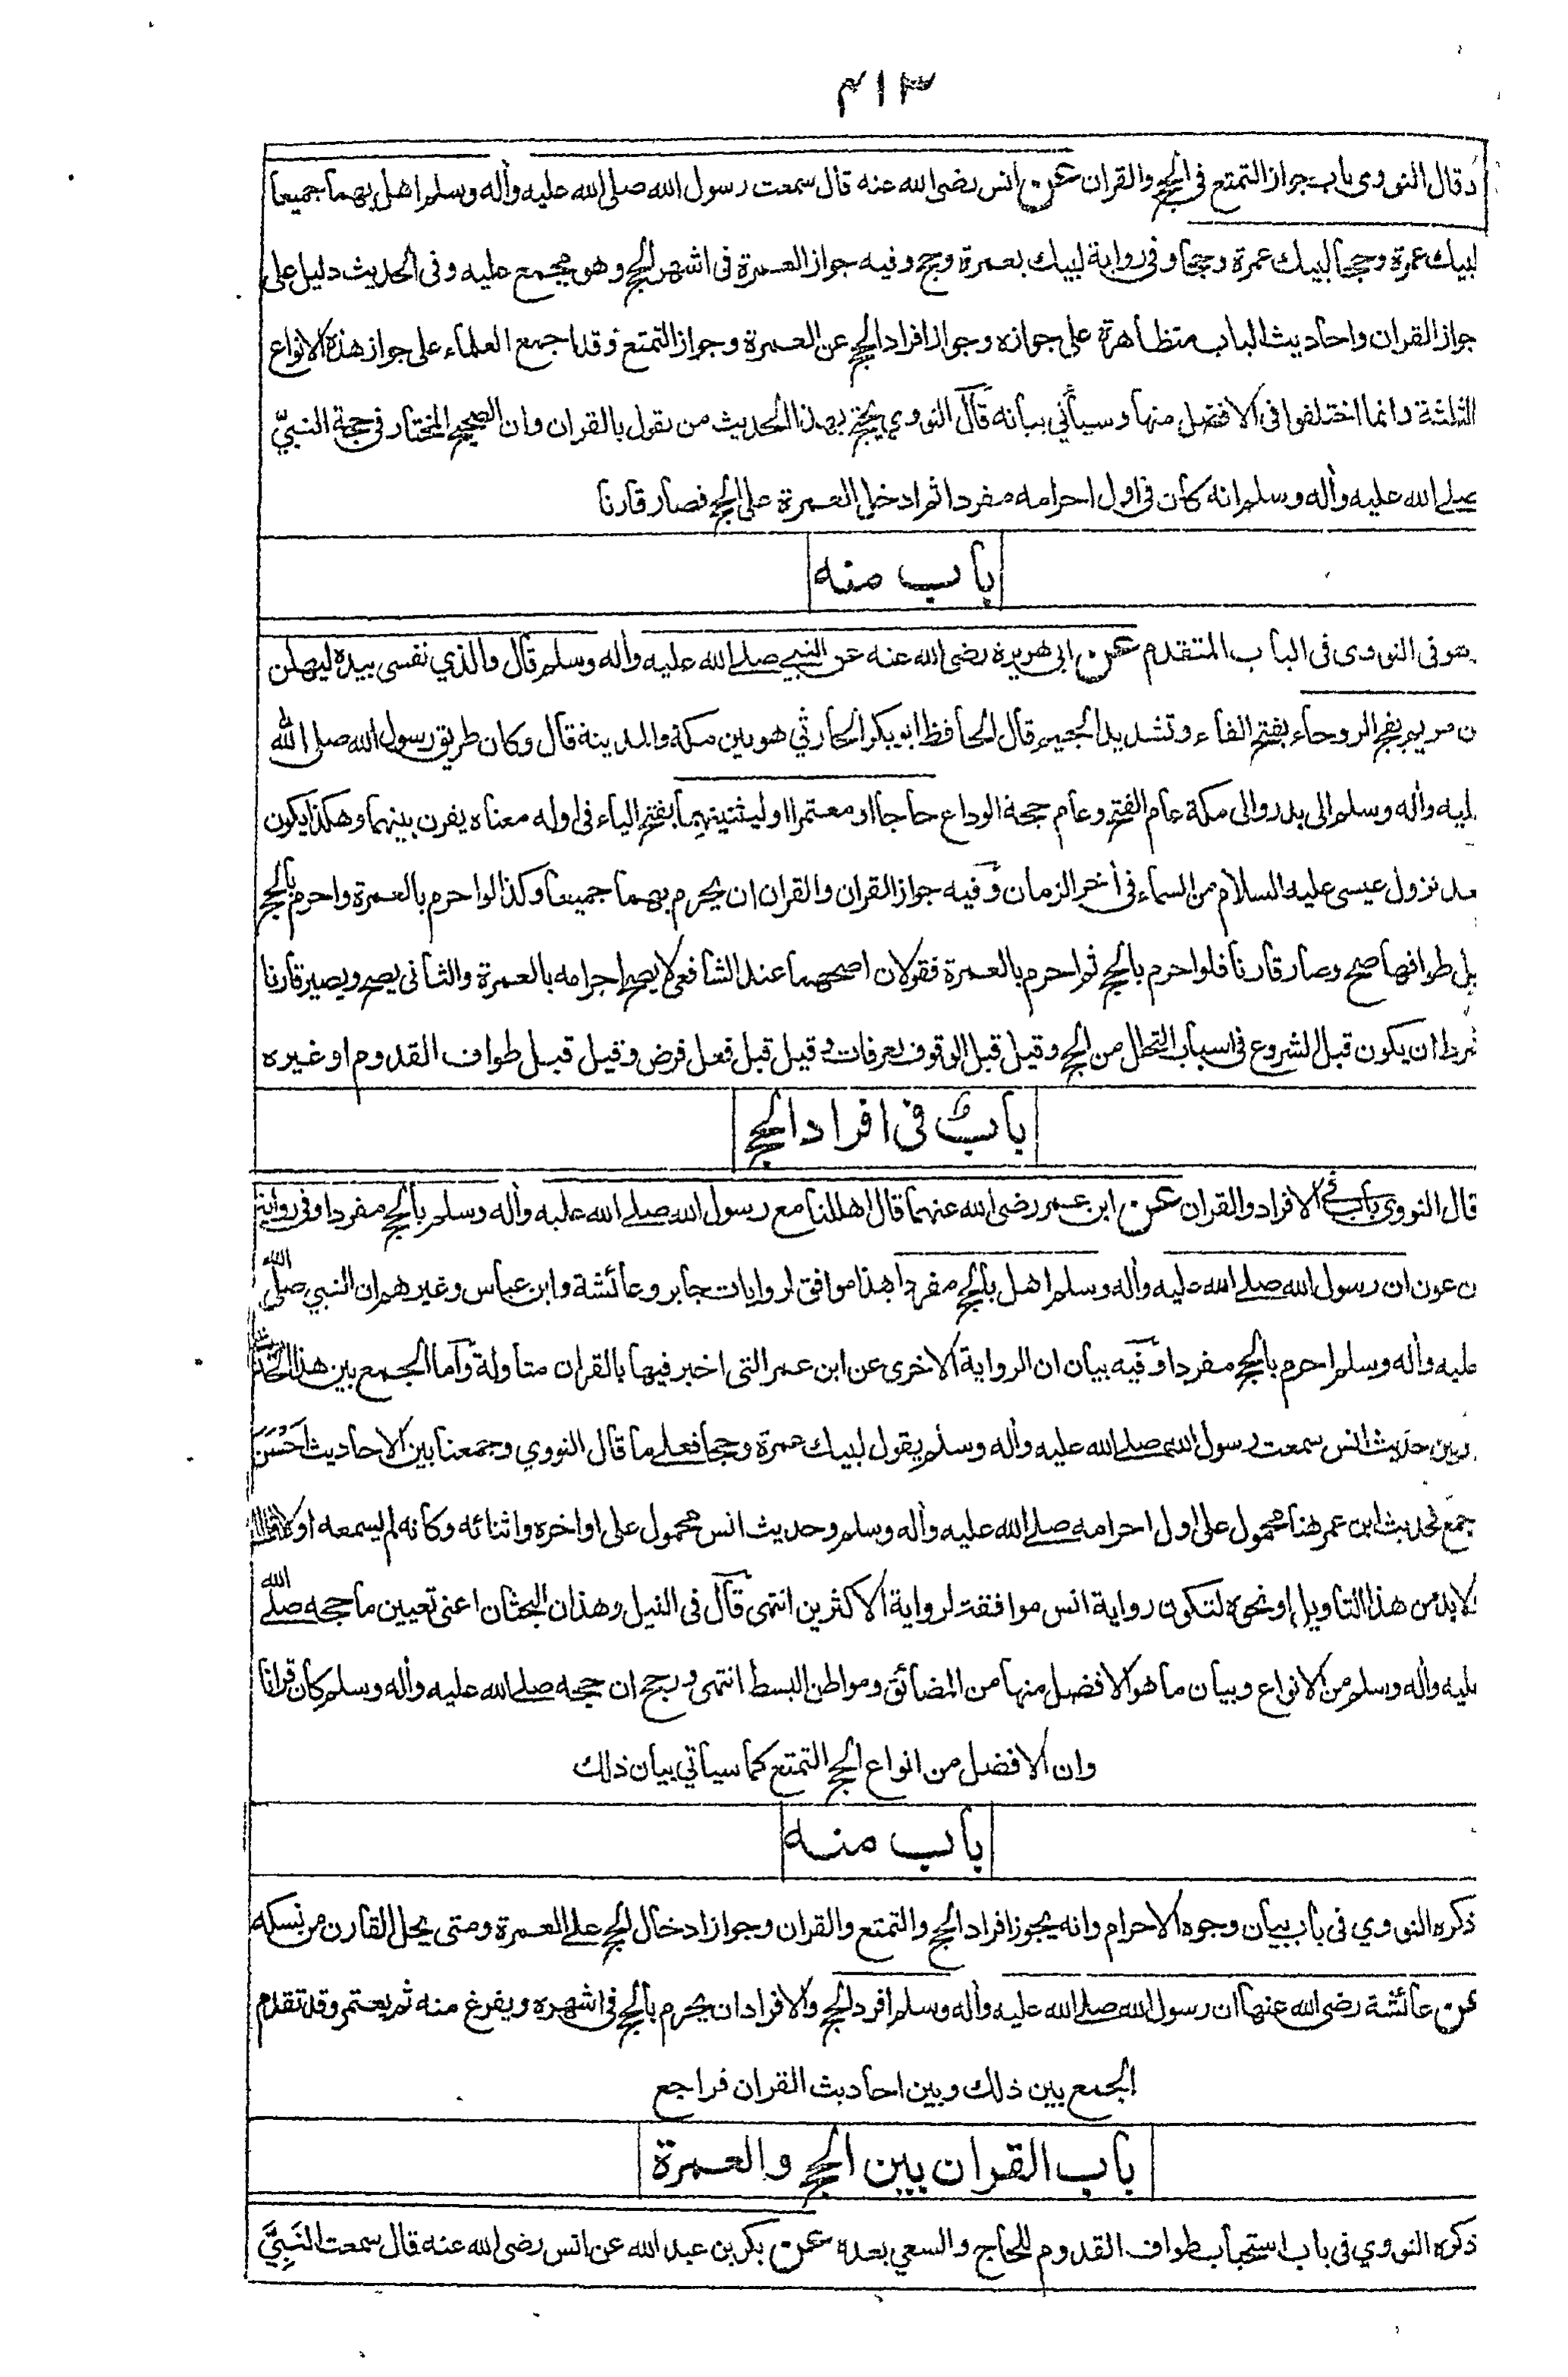 ٤١٣
وقال النووي باب جواز التمتع فى الحج والقران عن انس رضى الله عنه قال سمعت رسول الله صلى الله عليه وأله وسلم اهل بهما جميعا
لبيك عمرة وحجا لبيك عمرة وحجا وفى رواية لبيك بعمرة وحج وفيه جواز العمرة فى اشهر الحج وهو مجمع عليه وفى الحديث دليل على
جواز القران واحاديث الباب متظاهرة على جوازه وجواز افراد الحج عن العمرة وجواز التمتع وقد اجمع العلماء على جواز هذه الانواع
الثلثة وانما اختلفوا فى الافضل منها وسيأتي بيانه قال النووي يحتج بهذا الحديث من يقول بالقران وان الصحيح المختار فى حجة النبيّ
صلى الله عليه وأله وسلم انه كان فى اول احرامه مفردا ثم ادخل العمرة على الحج فصار قارنا
باب منه
هو فى النووى فى الباب المتقدم عن ابى هريرة رضى الله عنه عن النبي صلى الله عليه وأله وسلم قال والذي نفسى بيده ليهلن
ن مريم بفج الروحاء بفتح الفاء وتشديد الجيم قال الحافظ ابو بكر الحارثي هو بين مكة والمدينة قال وكان طريق رسول الله صلى الله
ليه وأله وسلم الى بدر والى مكة عام الفتح وعام حجة الوداع حاجا او معتمرا او ليثنينهما بفتح الياء فى اوله معناه يقرن بينهما وهكذا يكون
عد نزول عيسى عليه السلام من السماء فى أخر الزمان وفيه جواز القران والقران ان يحرم بهما جميعا وكذا لو احرم بالعمرة واحرم بالحج
بل طوافها صح وصار قارنا فلو احرم بالحج ثم احرم بالعمرة فقولان اصحهما عند الشافعى لا يصح احرامه بالعمرة والثانى يصح ويصير قارنا
شرط ان يكون قبل الشروع فى اسباب التحلل من الحج وقيل قبل الوقوف بعرفات وقيل قبل فعل فرض وقيل قبل طواف القدوم او غيره
باب فى افراد الحج
قال النووي باب فى الافراد والقران عن ابن عمر رضى الله عنهما قال اهللنا مع رسول الله صلى الله عليه وأله وسلم بالحج مفردا وفى رواية
ن عون ان رسول الله صلى الله عليه وأله وسلم اهل بالحج مفردا هذا موافق لروايات جابر وعائشة وابن عباس وغيرهم ان النبي صلى الله
عليه وأله وسلم احرم بالحج مفردا وفيه بيان ان الرواية الاخرى عن ابن عمر التى اخبر فيها بالقران متأولة وأما الجمع بين هذا الحديث
وبين حديث انس سمعت رسول الله صلى الله عليه وأله وسلم يقول لبيك عمرة وحجا فعلى ما قال النووي وجمعنا بين الاحاديث احسن
جمع فحديث ابن عمر هنا محمول على اول احرامه صلى الله عليه وأله وسلم وحديث انس محمول على اواخره واثنائه وكانه لم يسمعه اولا
لا بد من هذا التاويل او نحوه لتكون رواية انس موافقة لرواية الاكثرين انتهى قال فى النيل وهذان البحثان اعنى تعيين ما حجه صلى الله
عليه وأله وسلم من الانواع وبيان ما هو الافضل منها من المضائق ومواطن البسط انتهى ورجح ان حجه صلى الله عليه وأله وسلم كان قرانا
وان الافضل من انواع الحج التمتع كما سيأتي بيان ذلك
باب منه
ذكره النووي فى باب بيان وجوه الاحرام وانه يجوز افراد الحج والتمتع والقران وجواز ادخال الحج على العمرة ومتى يحل القارن من نسكه
عن عائشة رضى الله عنها ان رسول الله صلى الله عليه وأله وسلم افرد الحج والافراد ان يحرم بالحج فى اشهره ويفرغ منه ثم يعتمر وقد تقدم
الجمع بين ذلك وبين احاديث القران فراجع
باب القران بين الحج والعمرة
ذكره النووي فى باب استحباب طواف القدوم للحاج والسعي بعده عن بكر بن عبد الله عن انس رضى الله عنه قال سمعت النَبِيَّ